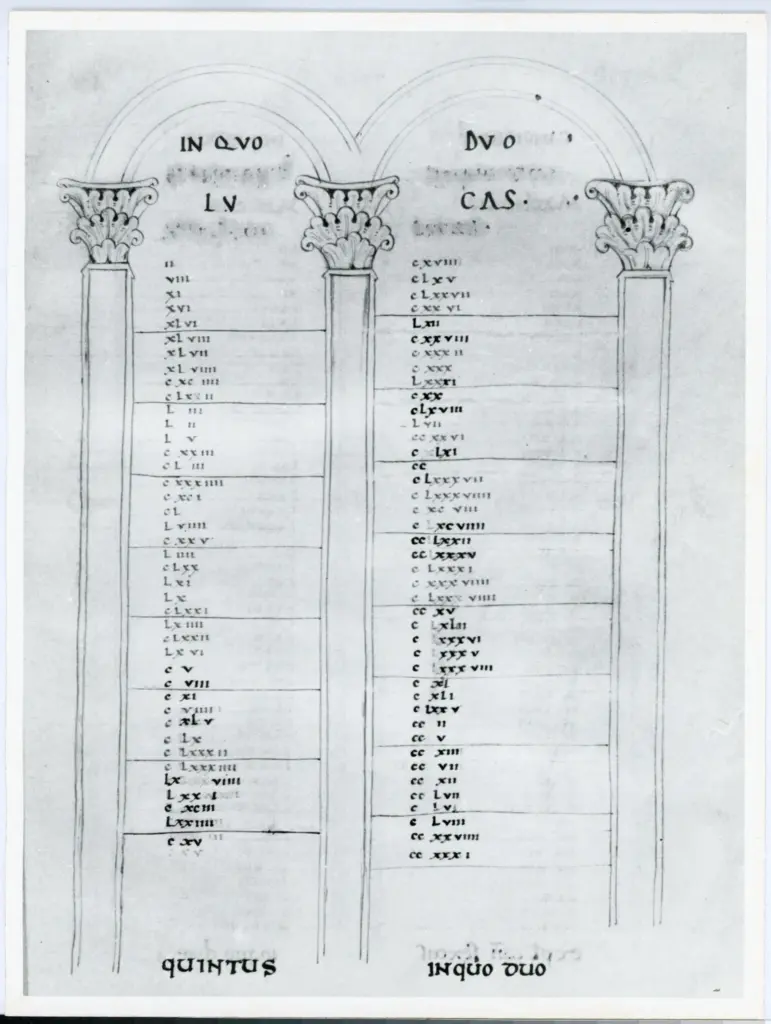 IN QVO
LV
ii
viii
xi
xvi
xLvi
xLviii
xLvii
xLviiii
c xc iiii
L iii
L ii
L v
c xxiii
cL iii
c xxxiiii
c xci
cL
L viiii
c xxv
L iiii
cLxx
Lxi
Lx
cLxxi
Lxiiii
cLxxii
Lxvi
c v
c viii
c xi
c viiii
c xLv
c Lx
c Lxxxii
c Lxxxiiii
Lx viiii
Lxx i
c xciii
Lxxiiii
c xv
QUINTUS
DVO
CAS·
cxviii
cLxv
cLxxvii
cxxvi
Lxii
cxxviii
cxxxii
c xxx
Lxxxi
cxx
cLxviii
Lvii
ccxxvi
c Lxi
cc
cLxxxvii
c Lxxxviiii
c xc viii
c Lxcviiii
cc Lxxii
cc Lxxxv
c Lxxxi
c xxxviiii
c Lxxxviiii
cc xv
c LxLii
c Lxxxvi
c Lxxxv
c Lxxxviii
c xl
c xLi
c Lxxv
cc ii
cc v
cc xiii
cc vii
cc xii
cc Lvii
c Lvi
c Lviii
cc xxviiii
cc xxxi
INQUO DUO